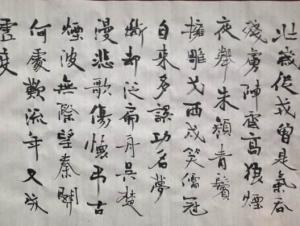 壯歲從戎曾是氣吞
殘虜陣雲高狼煙
夜舉朱顏青鬢
擁雕戈西戍笑儒冠
自來多誤功名夢
斷却泛扁舟吳楚
漫悲歌傷懷弔古
煙波無際望秦關
何處歎流年又成
虛度